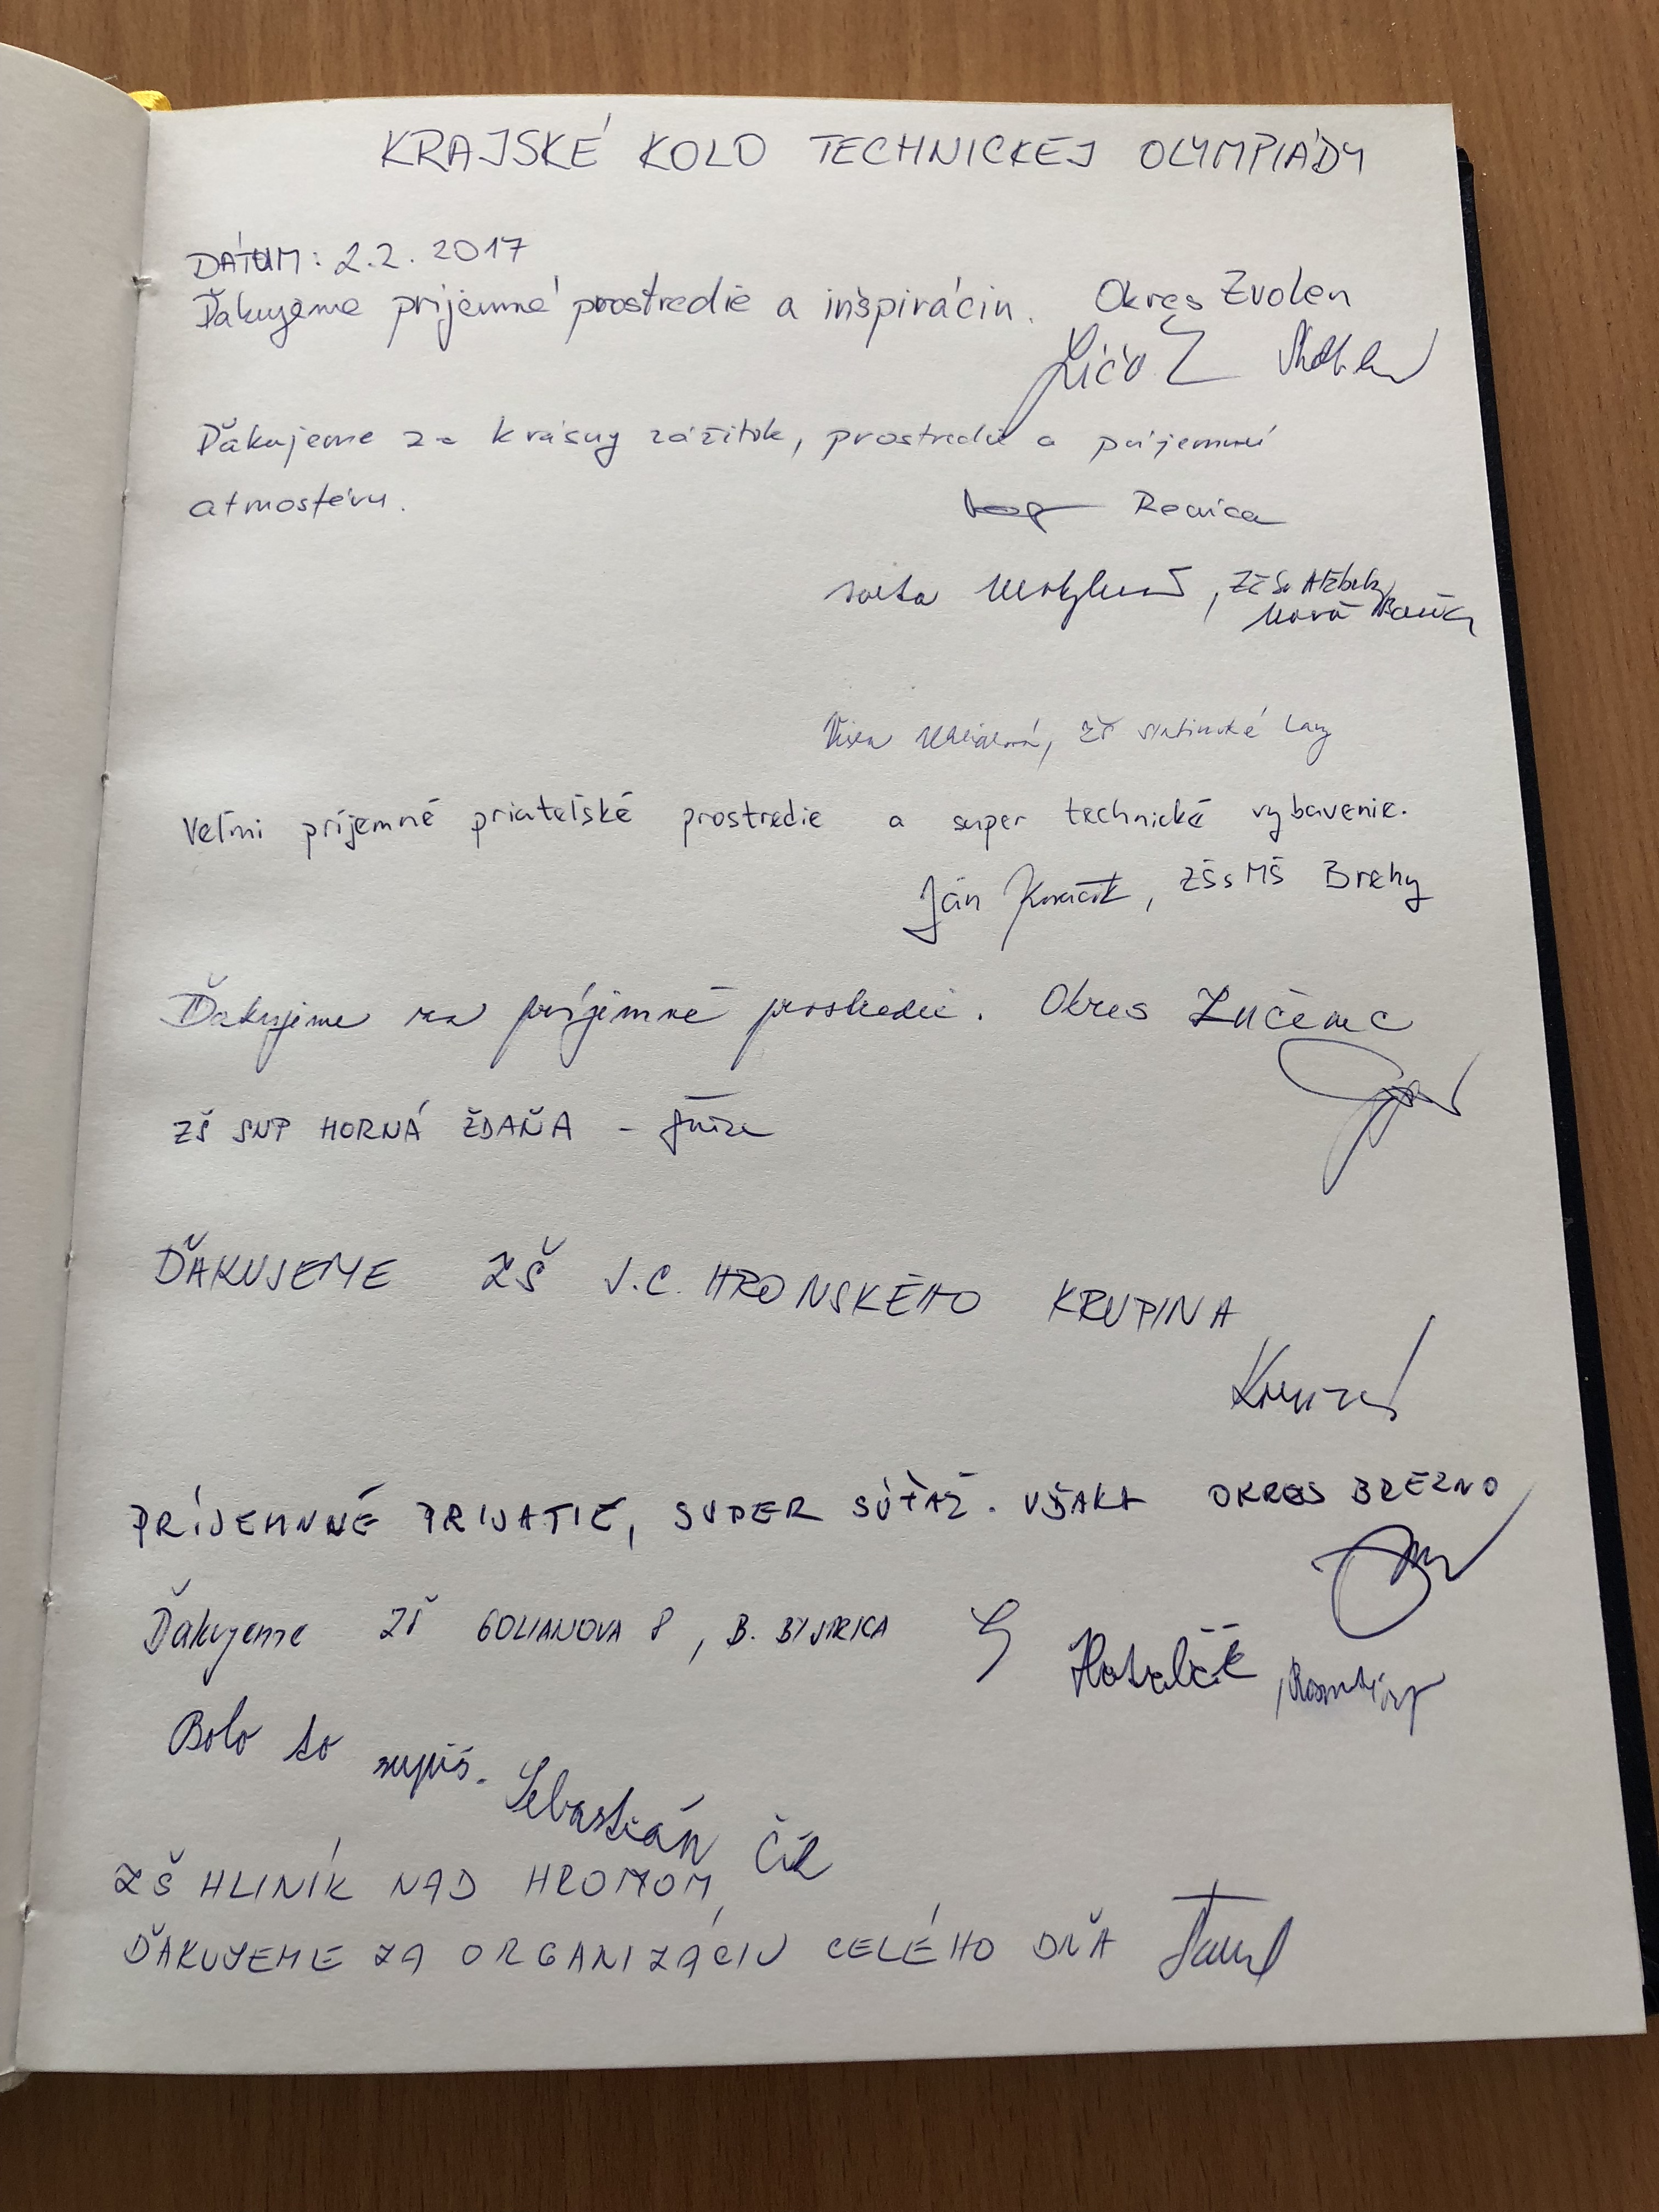 KRAJSKÉ KOLO TECHNICKEJ OLYMPIÁDY
DÁTUM: 2.2. 2017
Ďakujeme príjemné prostredie a inšpiráciu. Okres Zvolen
Ďakujeme za krásny zážitok, prostredie a príjemnú
atmosféru.
Revúca
ZŠ Sv. Alžbety
Nová Baňa
ZŠ Slatinské Lazy
Veľmi príjemné priateľské prostredie a super technické vybavenie.
Ján ZŠsMŠ Brehy
Ďakujeme za príjemné prostredie. Okres Lučenec
ZŠ SNP HORNÁ ŽDAŇA -
ĎAKUJEME ZŠ J.C. HRONSKÉHO KRUPINA
PRÍJEMNNÉ PRIJATIE, SUPER SÚŤAŽ. VĎAKA OKRES BREZNO
Ďakujeme ZŠ GOLIANOVA 8, B. BYSTRICA
Bolo to supiš. Sebastián Číž
ZŠ HLINÍK NAD HRONOM,
ĎAKUJEME ZA ORGANIZÁCIU CELÉHO DŇA